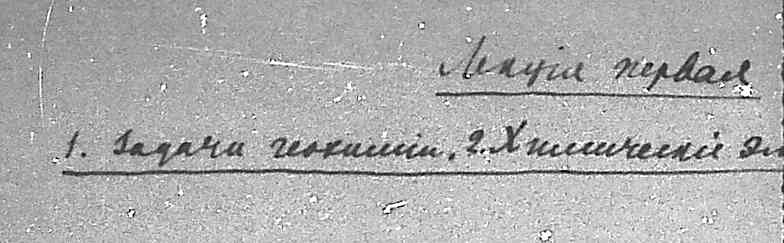 Лекція первая
1. Задачи геохиміи. 2. Химическіе эл